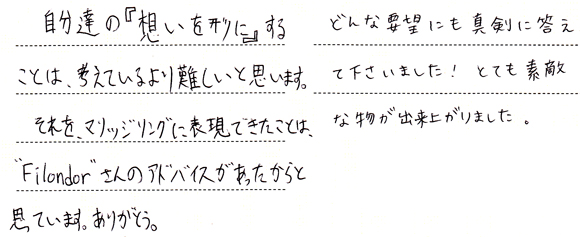 自分達の『想いを形に』する
ことは、考えているより難しいと思います。
それを、マリッジリングに表現できたことは、
"Filondor"さんのアドバイスがあったからと
思っています。ありがとう。
どんな要望にも真剣に答え
て下さいました！とても素敵
な物が出来上がりました。